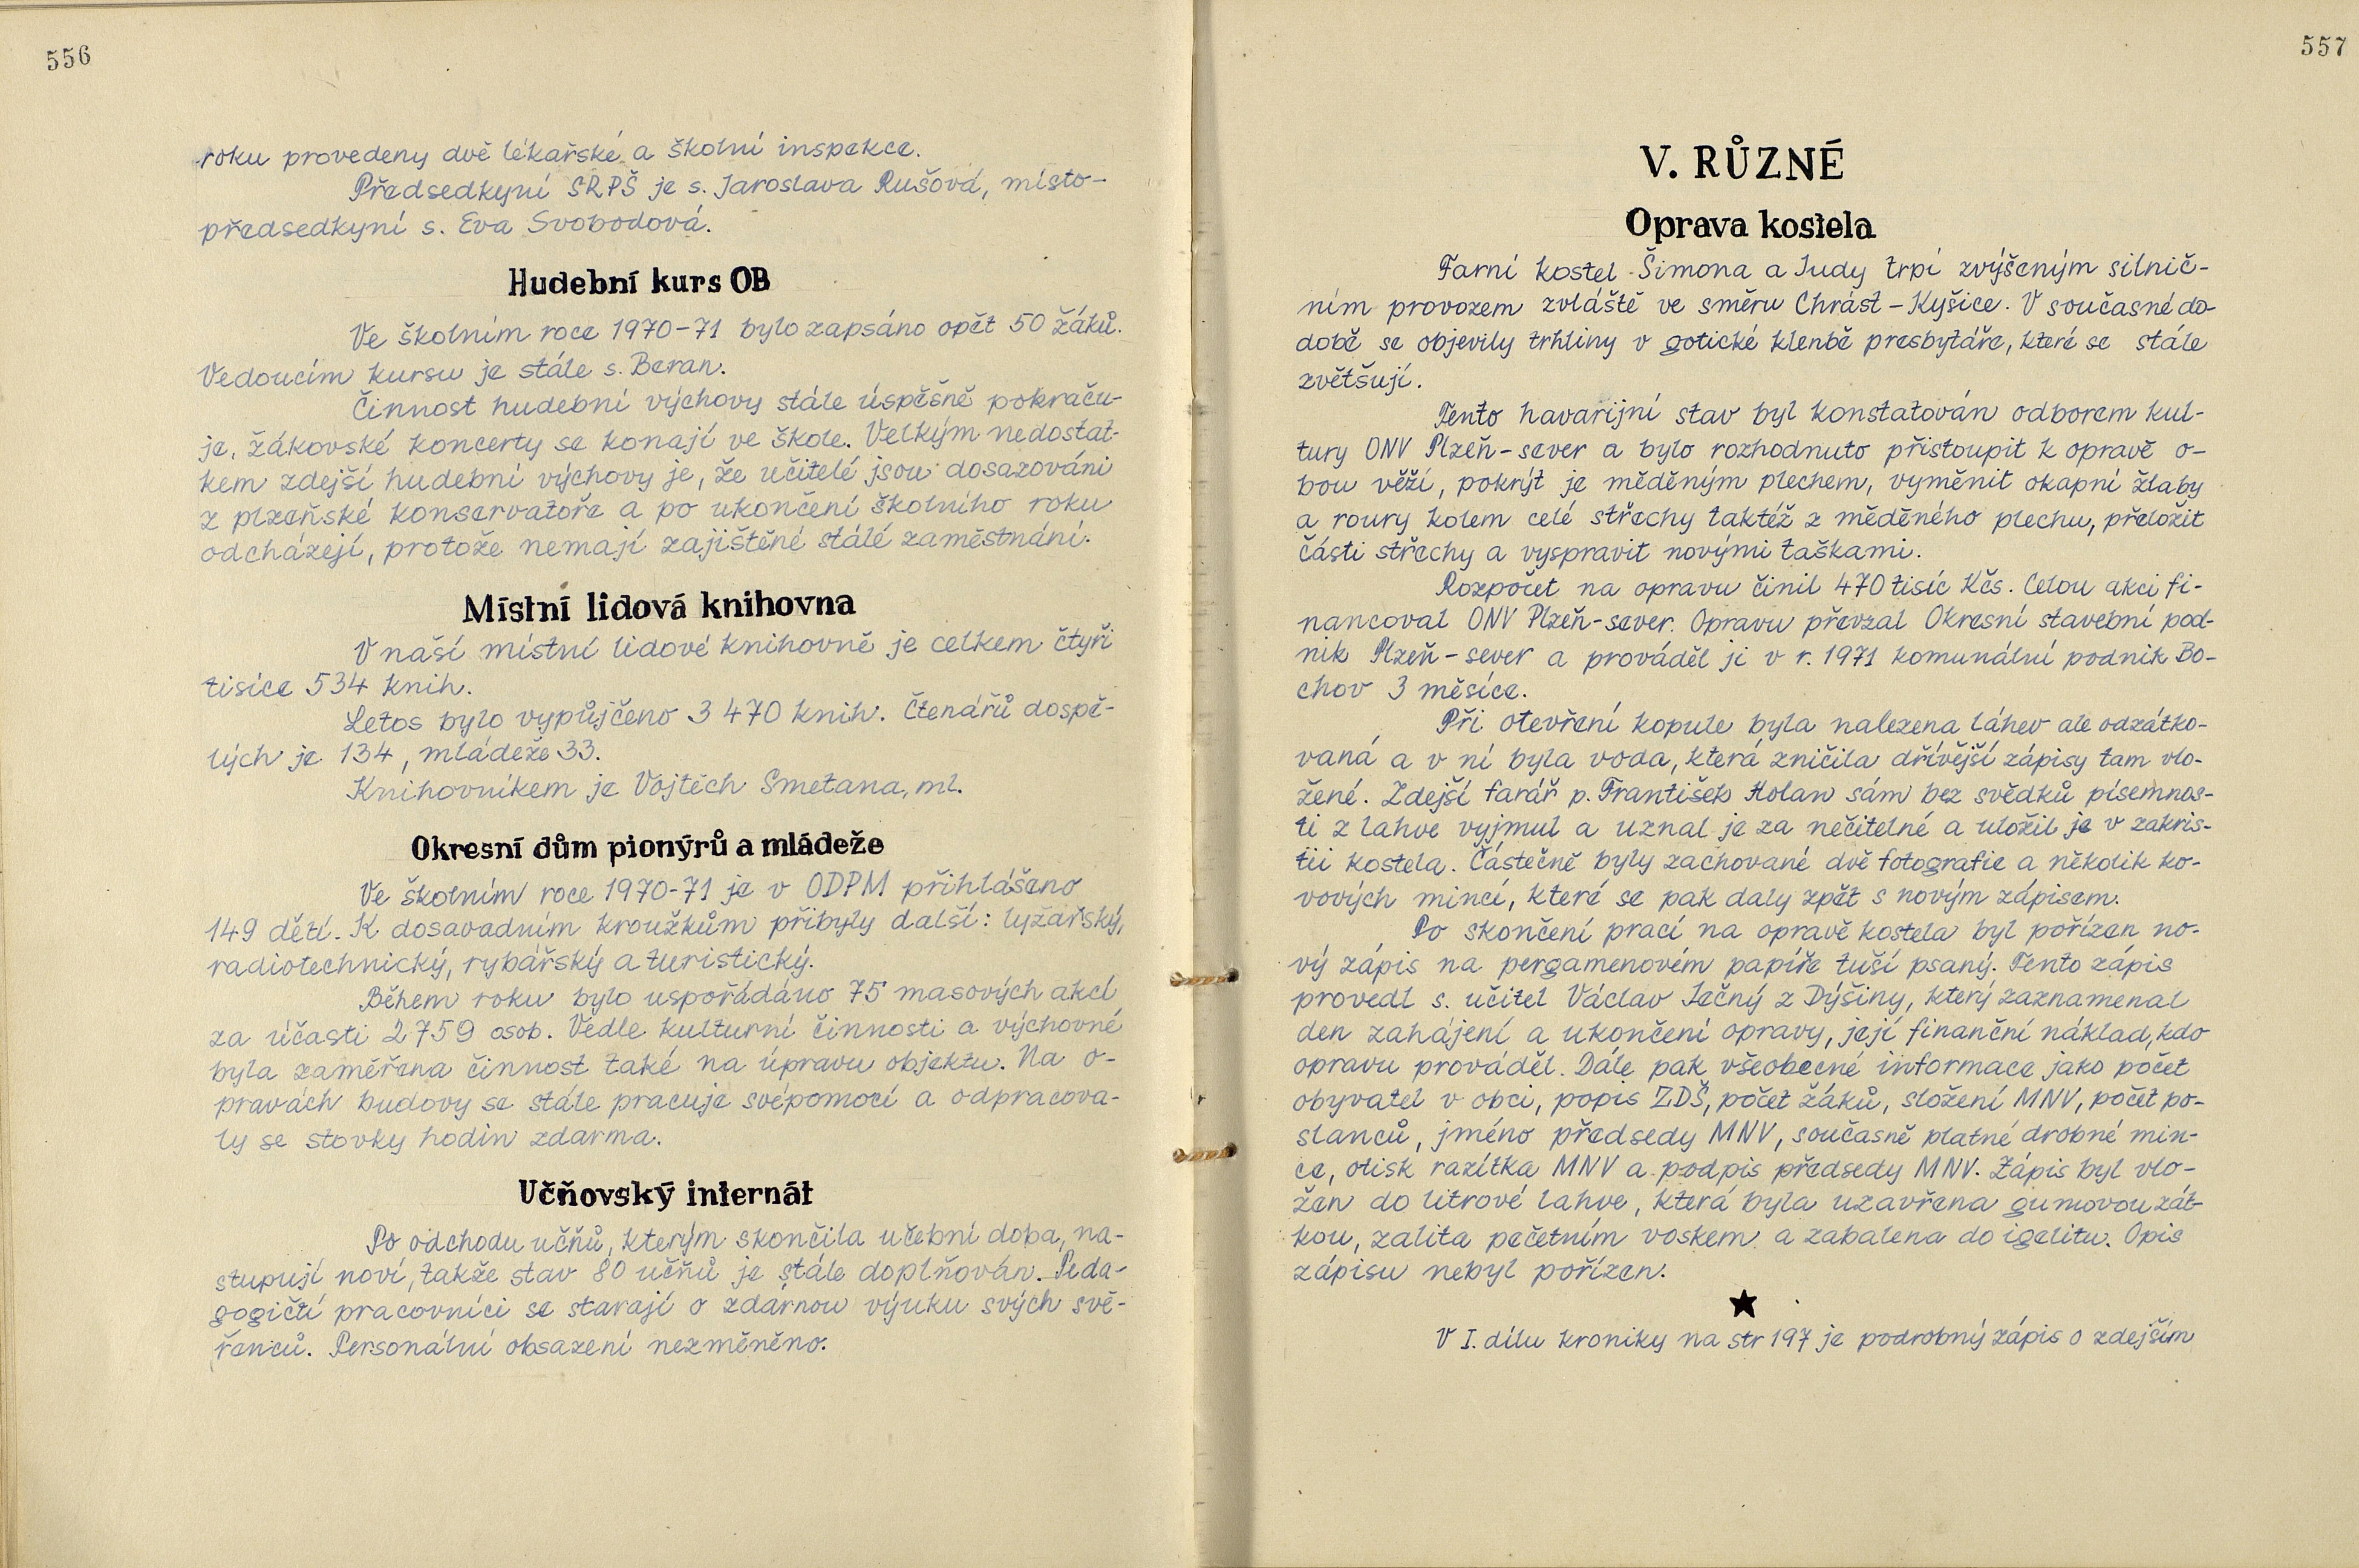 556
roku provedeny dvě lékařské a školní inspekce.
Předsedkyní SRPŠ je s. Jaroslava Rušová, místo-
předsedkyní s. Eva Svobodová.
Hudební kurs OB
Ve školním roce 1970-71 bylo zapsáno opět 50 žáků.
Vedoucím kursu je stále s. Beran.
Činnost hudební výchovy stále úspěšně pokraču-
je, žákovské koncerty se konají ve škole. Velkým nedostat-
kem zdejší hudební výchovy je, že učitelé jsou dosazováni
z plzeňské konservatoře a po ukončení školního roku
odcházejí, protože nemají zajištěné stálé zaměstnání.
Místní lidová knihovna
V naší místní lidové knihovně je celkem čtyři
tisíce 534 knih.
Letos bylo vypůjčeno 3 470 knih. Čtenářů dospě-
lých je 134, mládeže 33.
Knihovníkem je Vojtěch Smetana, ml.
Okresní dům pionýrů a mládeže
Ve školním roce 1970-71 je v ODPM přihlášeno
149 dětí. K dosavadním kroužkům přibyly další: lyžařský,
radiotechnický, rybářský a turistický.
Během roku bylo uspořádáno 75 masových akcí
za účasti 2 759 osob. Vedle kulturní činnosti a výchovné
byla zaměřena činnost také na úpravu objektu. Na o-
pravách budovy se stále pracuje svépomocí a odpracova-
ly se stovky hodin zdarma.
Učňovský internát
Po odchodu učňů, kterým skončila učební doba, na-
stupují noví, takže stav 80 učňů je stále doplňován. Peda-
gogičtí pracovníci se starají o zdárnou výuku svých svě-
řenců. Personální obsazení nezměněno.
557
V. RŮZNÉ
Oprava kostela
Farní kostel Šimona a Judy trpí zvýšeným silnič-
ním provozem zvláště ve směru Chrást - Kyšice. V současné do-
době se objevily trhliny v gotické klenbě presbytáře, které se stále
zvětšují.
Tento havarijní stav byl konstatován odborem kul-
tury ONV Plzeň-sever a bylo rozhodnuto přistoupit k opravě o-
bou věží, pokrýt je měděným plechem, vyměnit okapní žlaby
a roury kolem celé střechy taktéž z měděného plechu, přeložit
části střechy a vyspravit novými taškami.
Rozpočet na opravu činil 470 tisíc Kčs. Celou akci fi-
nancoval ONV Plzeň-sever. Opravu převzal Okresní stavební pod-
nik Plzeň-sever a prováděl ji v r. 1971 komunální podnik Bo-
chov 3 měsíce.
Při otevření kopule byla nalezena láhev ale odzátko-
vaná a v ní byla voda, která zničila dřívější zápisy tam vlo-
žené. Zdejší farář p. František Holan sám bez svědků písemnos-
ti z lahve vyjmul a uznal je za nečitelné a uložil je v zakris-
tii kostela. Částečně byly zachované dvě fotografie a několik ko-
vových mincí, které se pak daly zpět s novým zápisem.
Po skončení prací na opravě kostela byl pořízen no-
vý zápis na pergamenovém papíře tuší psaný. Tento zápis
provedl s. učitel Václav Ječný z Dýšiny, který zaznamenal
den zahájení a ukončení opravy, její finanční náklad, kdo
opravu prováděl. Dále pak všeobecné informace jako počet
obyvatel v obci, popis ZDŠ, počet žáků, složení MNV, počet po-
slanců, jméno předsedy MNV, současně platné drobné min-
ce, otisk razítka MNV a podpis předsedy MNV. Zápis byl vlo-
žen do litrové lahve, která byla uzavřena gumovou zát-
kou, zalita pečetním voskem a zabalena do igelitu. Opis
zápisu nebyl pořízen.
V I. dílu kroniky na str 197 je podrobný zápis o zdejším